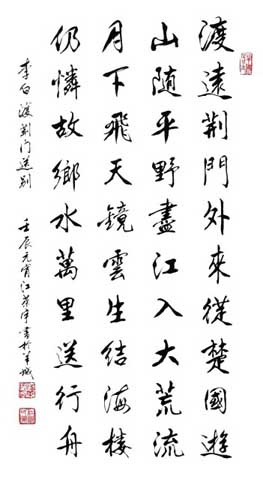 渡遠荊門外來從楚國遊
山随平野盡江入大荒流
月下飛天鏡雲生結海樓
仍憐故鄉水萬里送行舟
李白渡荊门送别 壬辰元宵江書於羊城